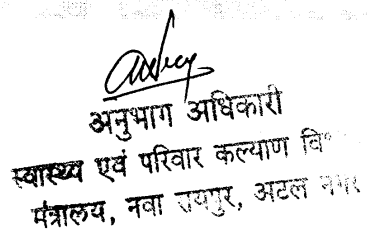 अनुभाग अधिकारी
स्वास्थ्य एवं परिवार कल्याण वि
मंत्रालय, नवा रायपुर, अटल नगर